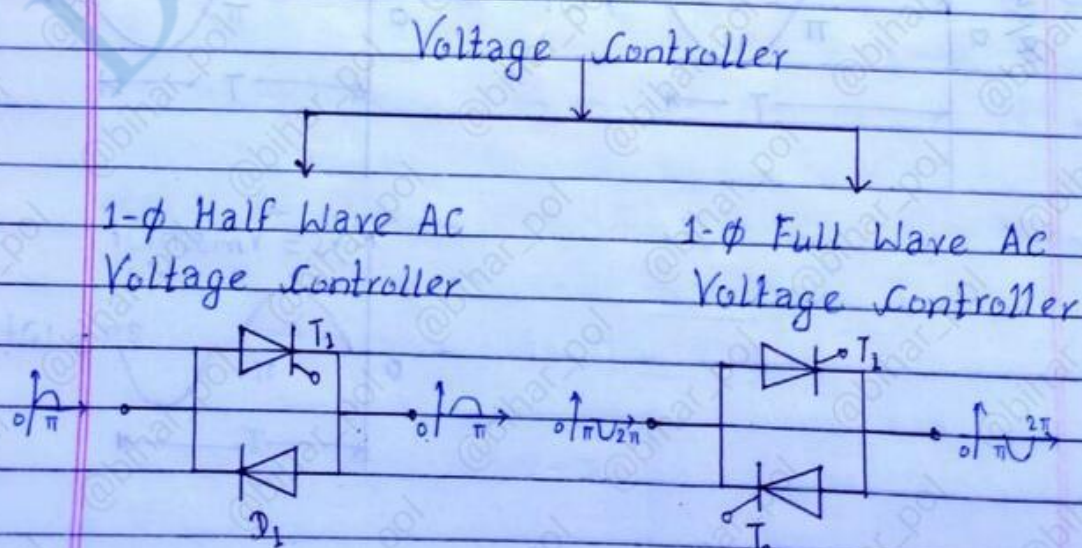 Voltage Controller
1-φ Half Wave AC
Voltage Controller
1-φ Full Wave AC
Voltage Controller
T1
T1
0 π
0 π
0 π 2π
0 π 2π
D1
@bihar_pol